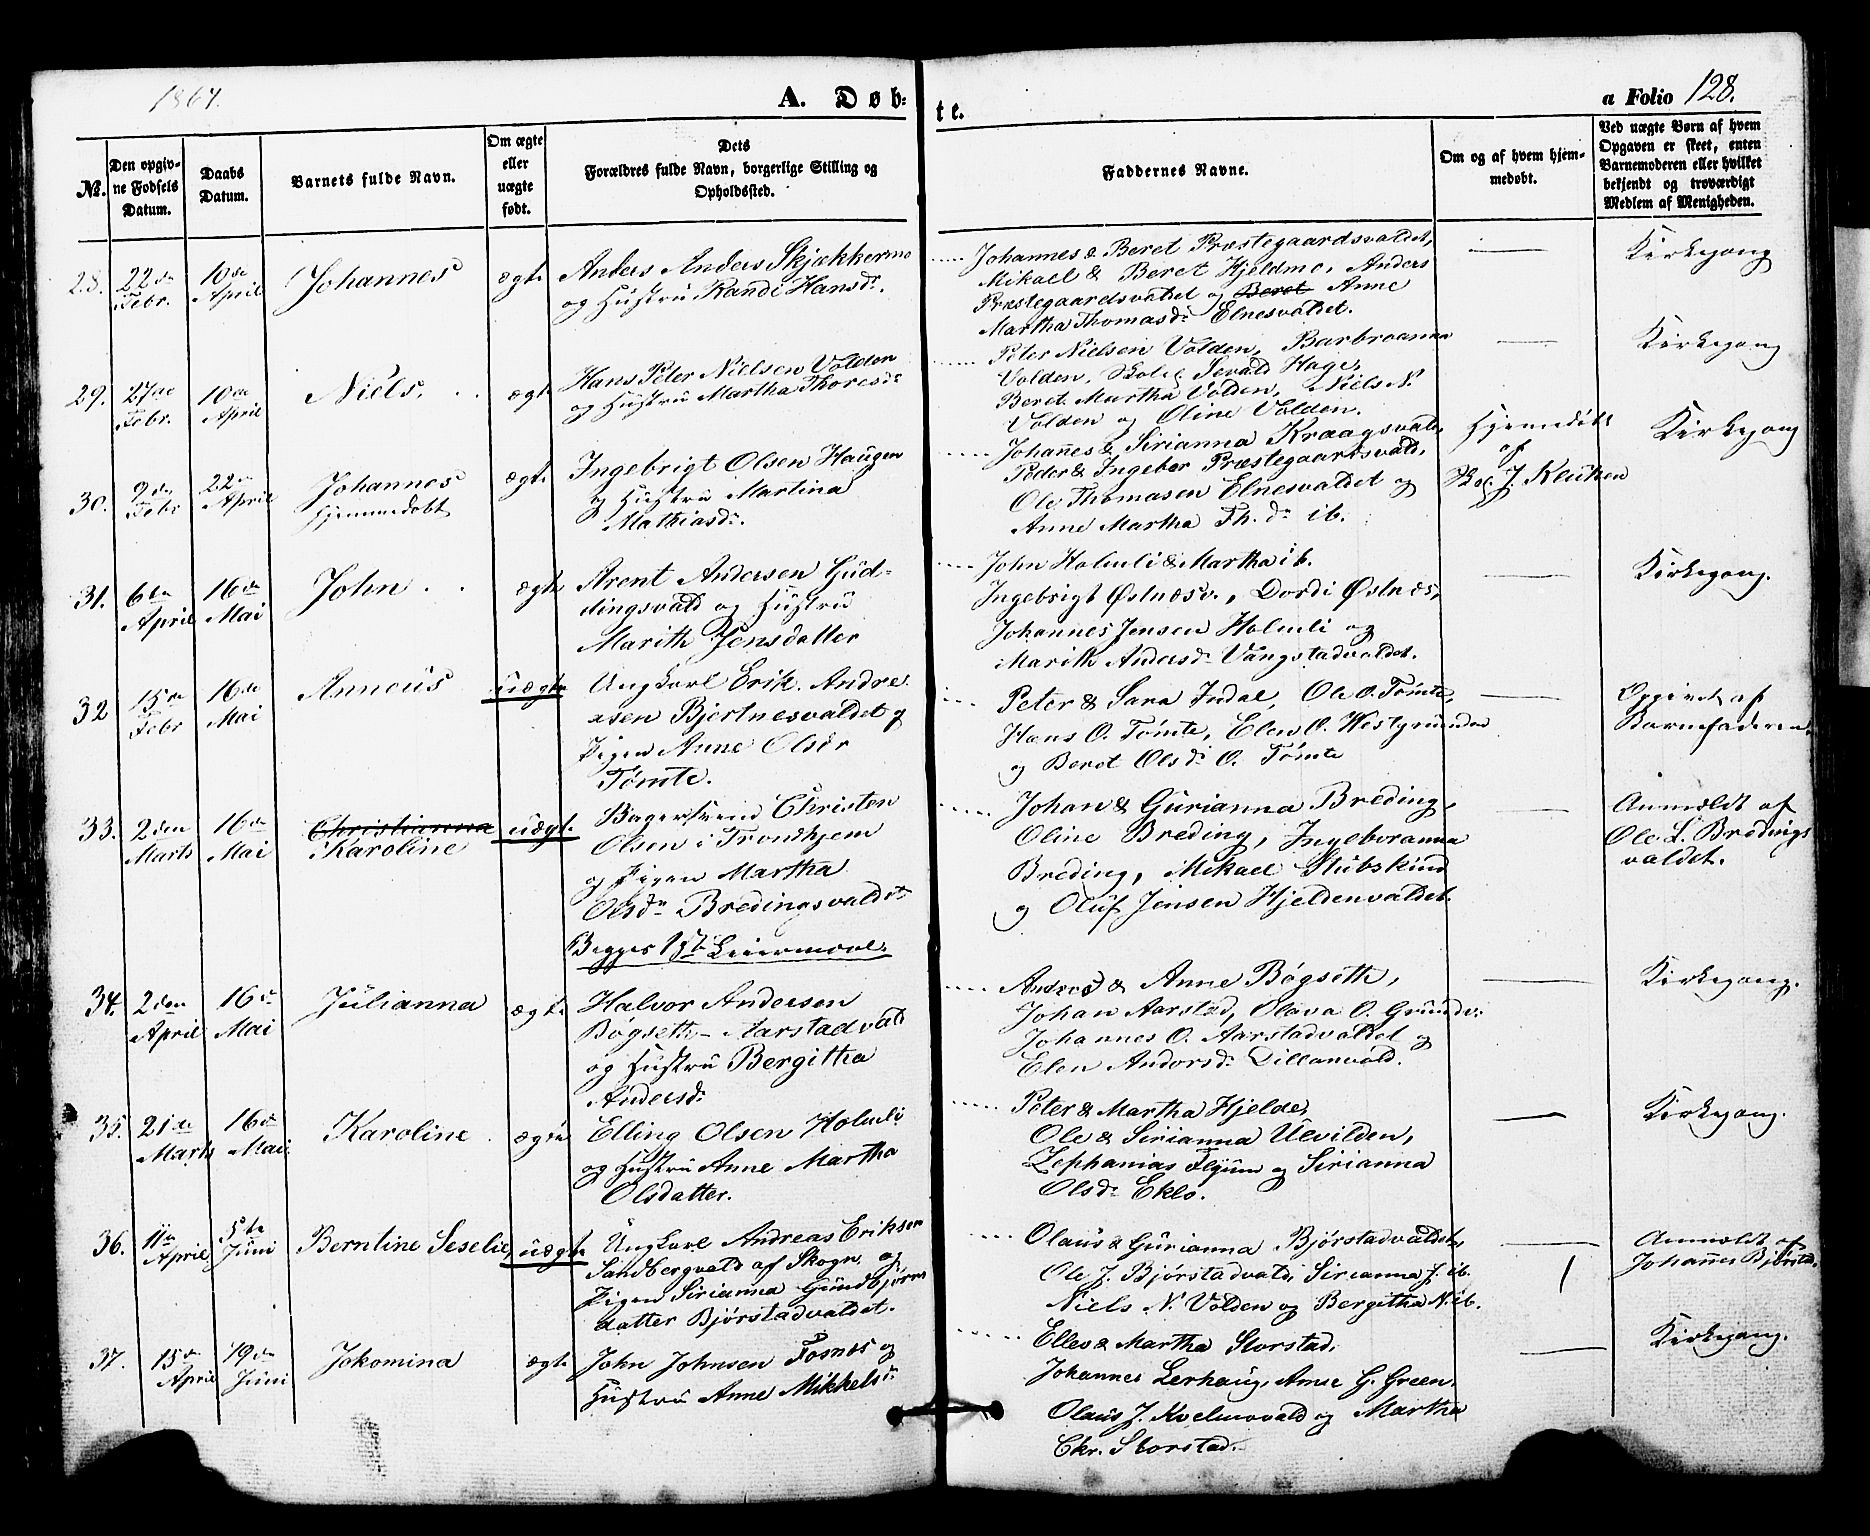 1864.
A. Døb:
te.
a Folio 128.
No.
Den opgiv-
ne Fødsels
Datum.
Daabs
Datum.
Barnets fulde Navn.
Om ægte
eller
uægte
født.
Dets
Forældres fulde Navn, borgerlige Stilling og
Opholdssted.
Faddernes Navne.
Om og af hvem hjem-
medøbt.
Ved uægte Børn af hvem
Opgaven er skeet, enten
Barnemoderen eller hvilket
bekjendt og troværdigt
Medlem af Menigheden.
28.
22de
Febr.
10de
April
Johannes
ægte
Anders Anders Skjækkermo
og Hustru Randi Hansdr.
Johannes & Beret Præstegaardsvaldet,
Mikael & Beret Hjeldmo, Anders
Præstegaardsvaldet og Beret Anne
Martha Thomasdr Elnesvaldet.
Kirkegang
29.
27de
Febr.
10de
April
Niels.
ægte
Hans Peter Nielsen Volden
og Hustru Martha Thoresdr
Peter Nielsen Volden, Barbroanna
Volden, Sevald Hage,
Beret Martha Volden, Niels N.
Volden og Oline Volden.
Kirkegang
30.
9de
Febr
22de
April
Johannes
hjemmedøbt
ægte
Ingebrigt Olsen Haugen
og Hustru Martina
Mathiasdr.
Johannes & Sirianna Kraagsvald,
Peder & Ingebor Præstegaardsvald,
Ole Thomasen Elnesvaldet og
Anne Martha Th.dr ib.
Hjemmedøbt
af
J. Kluken
Kirkegang
31.
6te
April
16de
Mai
John
ægte
Arent Andersen Gud-
dingsvald og Hustru
Marith Jensdatter
John Holmli & Martha ib.
Ingebrigt Østnesv., Dordi Østnes,
Johannes Jensen Holmli og
Marith Andersdr Vangstadvaldet.
Kirkegang.
32
15de
Febr
16de
Mai
Anneus
uægte
Ungkarl Erik Andre-
asen Bjertnesvaldet og
Pigen Anne Olsdr
Tømte.
Peter & Sara Indal, Ole O. Tømte,
Hans O. Tømte, Elen O. Westgrunden
og Beret Olsdr O. Tømte
Opgivet af
Barnefaderen.
33.
2den
Marts
16de
Mai
Christianna
Karoline
uægt.
Bagersvend Christen
Olsen i Trondhjem
og Pigen Martha
Olsdr Bredingsvaldet
Begges 1ste Leiermaal.
Johan & Gurianna Breding,
Oline Breding, Ingeboranna
Breding, Mikael Stubskind
og Oluf Jensen Hjeldenvaldet.
Anmeldt af
Ole L. Bredings
valdet.
34.
2den
April
16de
Mai
Julianna
ægte
Halvor Andersen
Bøgseth-Aarstadvald
og Hustru Bergitha
Andersdr
Anders & Anne Bøgseth,
Johan Aarstad, Olava O. Grundv.
Johannes O. Aarstadvaldet og
Elen Andorsdr Dillanvald.
Kirkegang.
35.
21de
Marts
16de
Mai
Karoline
ægte
Elling Olsen Holmli
og Hustru Anne Martha
Olsdatter.
Peter & Martha Hjelde,
Ole & Sirianna Ulvilden,
Zephanias Flyum og Sirianna
Olsdr Eklo.
Kirkegang.
36.
11te
April
5te
Juni
Berntine Seselie
uægte
Ungkarl Andreas Eriksen
Sandbergvald af Skogn og
Pigen Sirianna Gundbjørns
datter Bjørstadvaldet.
Olaus & Gurianna Bjørstadvaldet,
Ole J. Bjørstadvald, Sirianna J. ib.
Niels N. Volden og Bergitha N. ib.
Anmeldt af
Johannes Bjørstad.
37.
15de
April
19de
Juni
Jakomina
ægte
John Johnsen Fosnes og
Hustru Anne Mikkelsdr
Ellev & Martha Storstad,
Johannes Lerhaug, Anne G. Green,
Olaus J. Kvelmovald og Martha
Chr. Storstad.
Kirkegang.